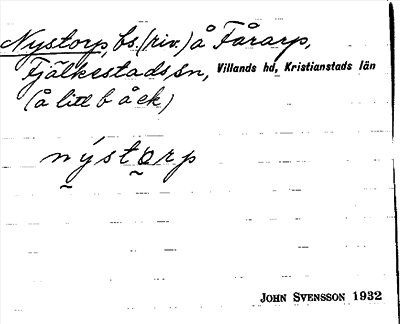 Nystorp, bs. (riv.) å Fårarp,
Fjälkestads, sn, Villands hd, Kristianstads län
(å litl b å ck)
nýsto̰rp
JOHN SVENSSON 1932